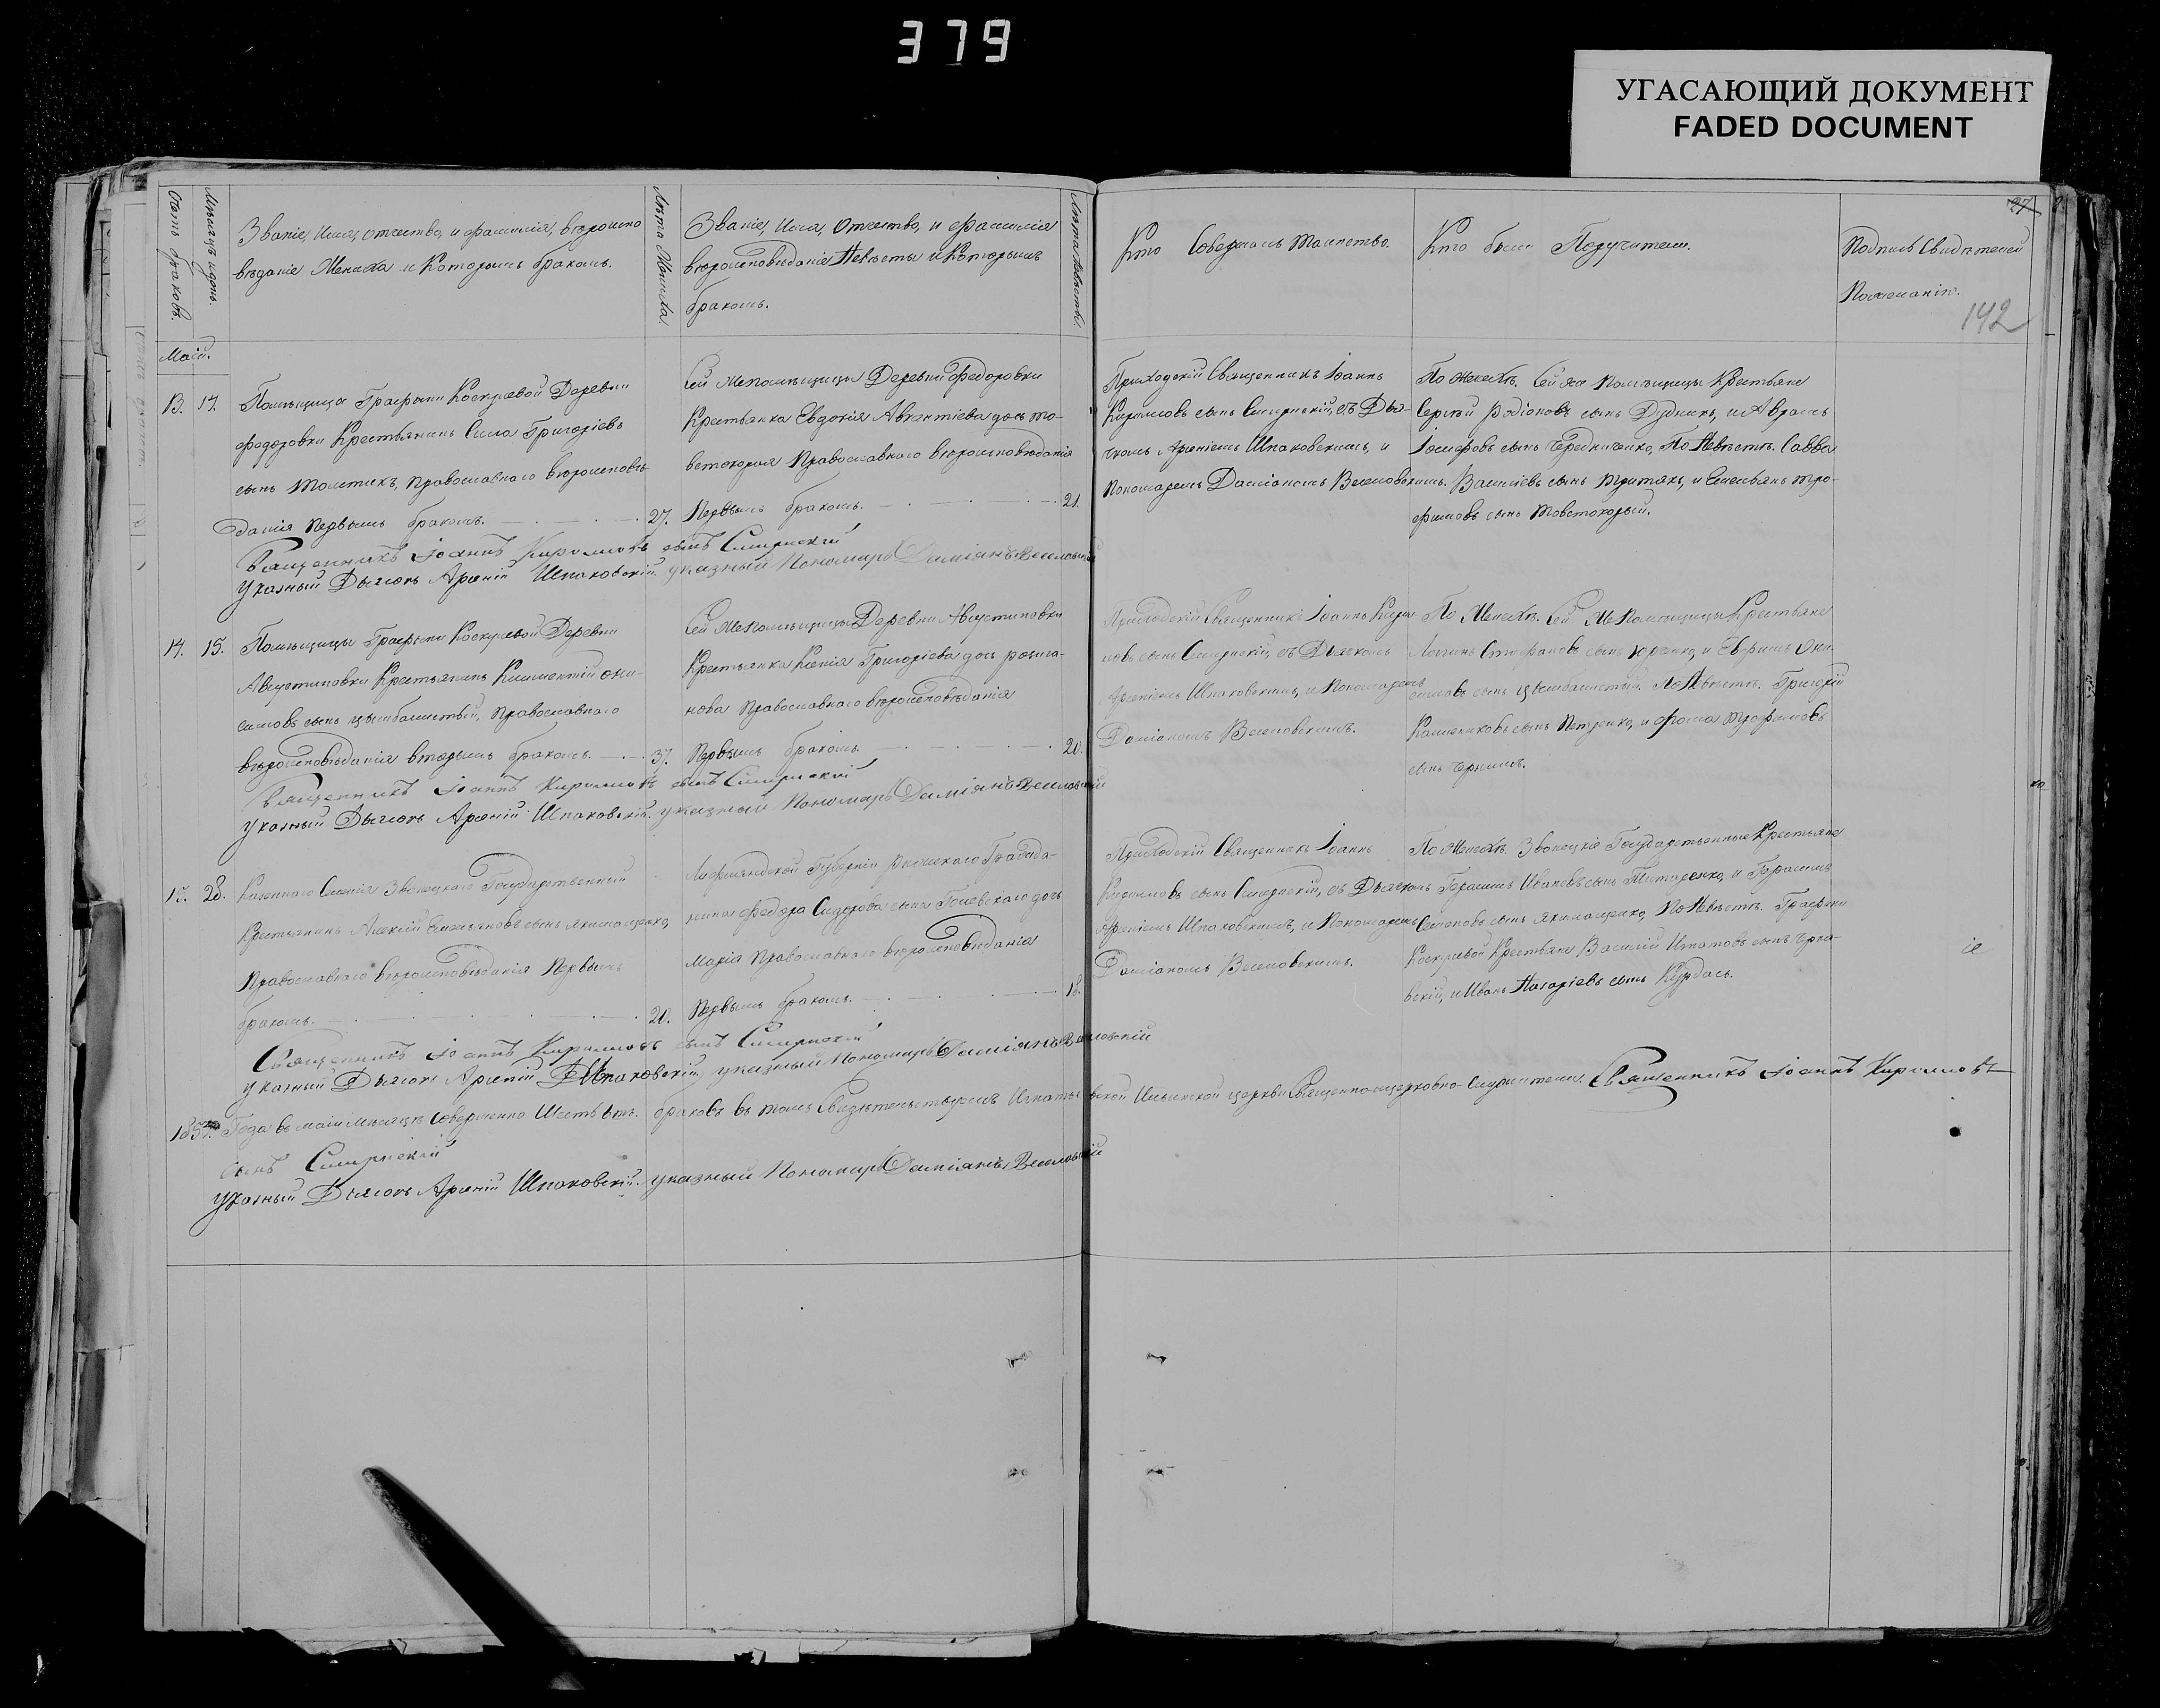 379
УГАСАЮЩИЙ ДОКУМЕНТ
FADED DOCUMENT
27
142
Счетъ браковъ.
Мѣсяцъ и день.
Званіе, Имя, отчество, и фамилія, вѣроиспо
вѣданіе Жениха и Которымъ бракомъ.
Лѣта Жениха.
Званіе, Имя, Отчество, и фамилія
вѣроисповѣданіе Невѣсты и Которымъ
бракомъ.
Лѣта Невѣсты.
Кто Совершалъ Таинство.
Кто были Поручители.
Подпись Свидѣтелей
По желанію.
Маій.
13. 14.
Помѣщицы Графыни Деревни
Федоровки Крестьянинъ Сила Григоріевъ
сынъ Толстикъ, Православнаго вѣроисповѣ-
данія Первымъ бракомъ. 27.
Сей же помѣщицы Деревни Федоровки
Крестьянка Евдокія дочь то-
встокорая Православнаго вѣроисповѣданія
Первымъ бракомъ. 21.
Приходскій Священникъ Іоаннъ
Кириловъ сынъ съ Дья-
чкомъ Арсеніемъ Шпаковскимъ, и
Пономаремъ Даміаномъ Веселовскимъ.
По Женихѣ. Сей же помѣщицы Крестьяне
Сергѣй Родіоновъ сынъ Дудникъ, и Аврамъ
Іосифовъ сынъ Чередниченко, По Невѣстѣ. Савва
Василіевъ сынъ Притяка, и Емельянъ Тро-
фимовъ сынъ Товстокорый.
Священникъ Іоаннъ Кириловъ сынъ
Указный Дьячокъ Арсеній Шпаковскій. указный Пономарь Даміанъ Веселовскій
14. 15.
Помѣщицы Графыни Деревни
Августиновки Крестьянинъ Климентій Они-
симовъ сынъ Цымбалистый, Православнаго
вѣроисповѣданія вторымъ бракомъ. 37.
Сей же помѣщицы Деревни Августиновки
Крестьянка Ксенія Григоріева дочь
нова Православнаго вѣроисповѣданія
Первымъ бракомъ. 20.
Приходскій Священникъ Іоаннъ Кири
ловъ сынъ съ Дьячкомъ
Арсеніемъ Шпаковскимъ, и Пономаремъ
Даміаномъ Веселовскимъ.
По Женихѣ. Сей же Помѣщицы Крестьяне
Логинъ Стефановъ сынъ Юренко, и Они-
симовъ сынъ Цымбалистый. По Невѣстѣ. Григорій
сынъ Петренко, и Фома Трофимовъ
сынъ
Священникъ Іоаннъ Кириловъ сынъ
Указный Дьячокъ Арсеній Шпаковскій. указный Пономарь Даміанъ Веселовскій
15. 28.
Казеннаго Селенія Звонецкаго Государственный
Крестьянинъ Алексій Емельяновъ сынъ Якимащенко,
Православнаго вѣроисповѣданія Первымъ
бракомъ. 20.
Лифляндской Губерніи Рижскаго Гражда-
нина Федора Сидорова сына дочь
Марія Православнаго вѣроисповѣданія
Первымъ бракомъ. 18.
Приходскій Священникъ Іоаннъ
Кириловъ сынъ съ Дьячкомъ
Арсеніемъ Шпаковскимъ, и Пономаремъ
Даміаномъ Веселовскимъ.
По Женихѣ. Звонецкіе Государственные Крестьяне
Герасимъ Ивановъ сынъ Титаренко, и Герасимъ
Семеновъ сынъ Якимащенко, По Невѣстѣ. Графини
Крестьяне Василій Игнатовъ сынъ
вскій, и Иванъ Назаріевъ сынъ Курдасъ.
Священникъ Іоаннъ Кириловъ сынъ
Указный Дьячокъ Арсеній Шпаковскій указный Пономарь Даміанъ Веселовскій
Года въ маіи мѣсяцѣ совершенно Шесть браковъ въ томъ Свидѣтельствуемъ Ильинской церкви Священно-церковно-служители. Священникъ Іоаннъ Кириловъ
сынъ
Указный Дьячокъ Арсеній Шпаковскій. указный Пономарь Даміанъ Веселовскій